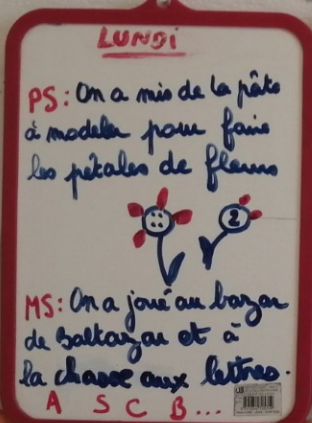 LUNDI
PS: On a mis de la pâte
à modeler pour faire
les pétales de fleurs
2
MS: On a joué au bazar
de Baltazar et à
la chasse aux lettres.
A S C B...